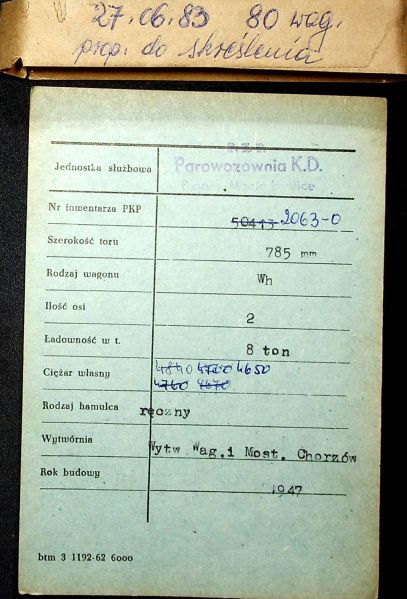 27.06.83 80 wag.
prop. do skreślenia
P.K.P.
Jednostka służbowa Parowozownia K.D.
Nr inwentarza PKP 50413 2063-0
Szerokość toru 785 mm
Rodzaj wagonu Wh
Ilość osi 2
Ładowność w t. 8 ton
Ciężar własny 4840 4700 4650
4760 4670
Rodzaj hamulca ręczny
Wytwórnia Wytw Wag.i Most. Chorzów
Rok budowy 1947
btm 3 1192-62 6000